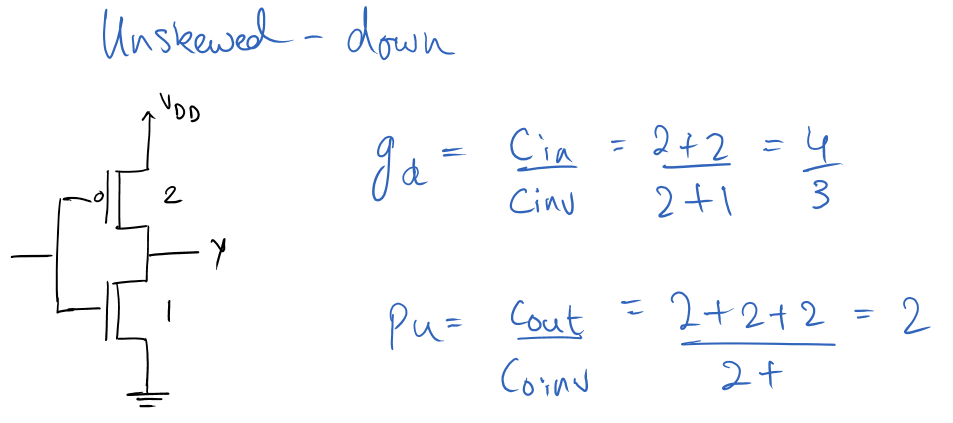 Unskewed - down
VDD
2
Y
1
gd = Cin/Cinv = 2+2/2+1 = 4/3
Pu = Cout/Coinv = 2+2+2/2+ = 2